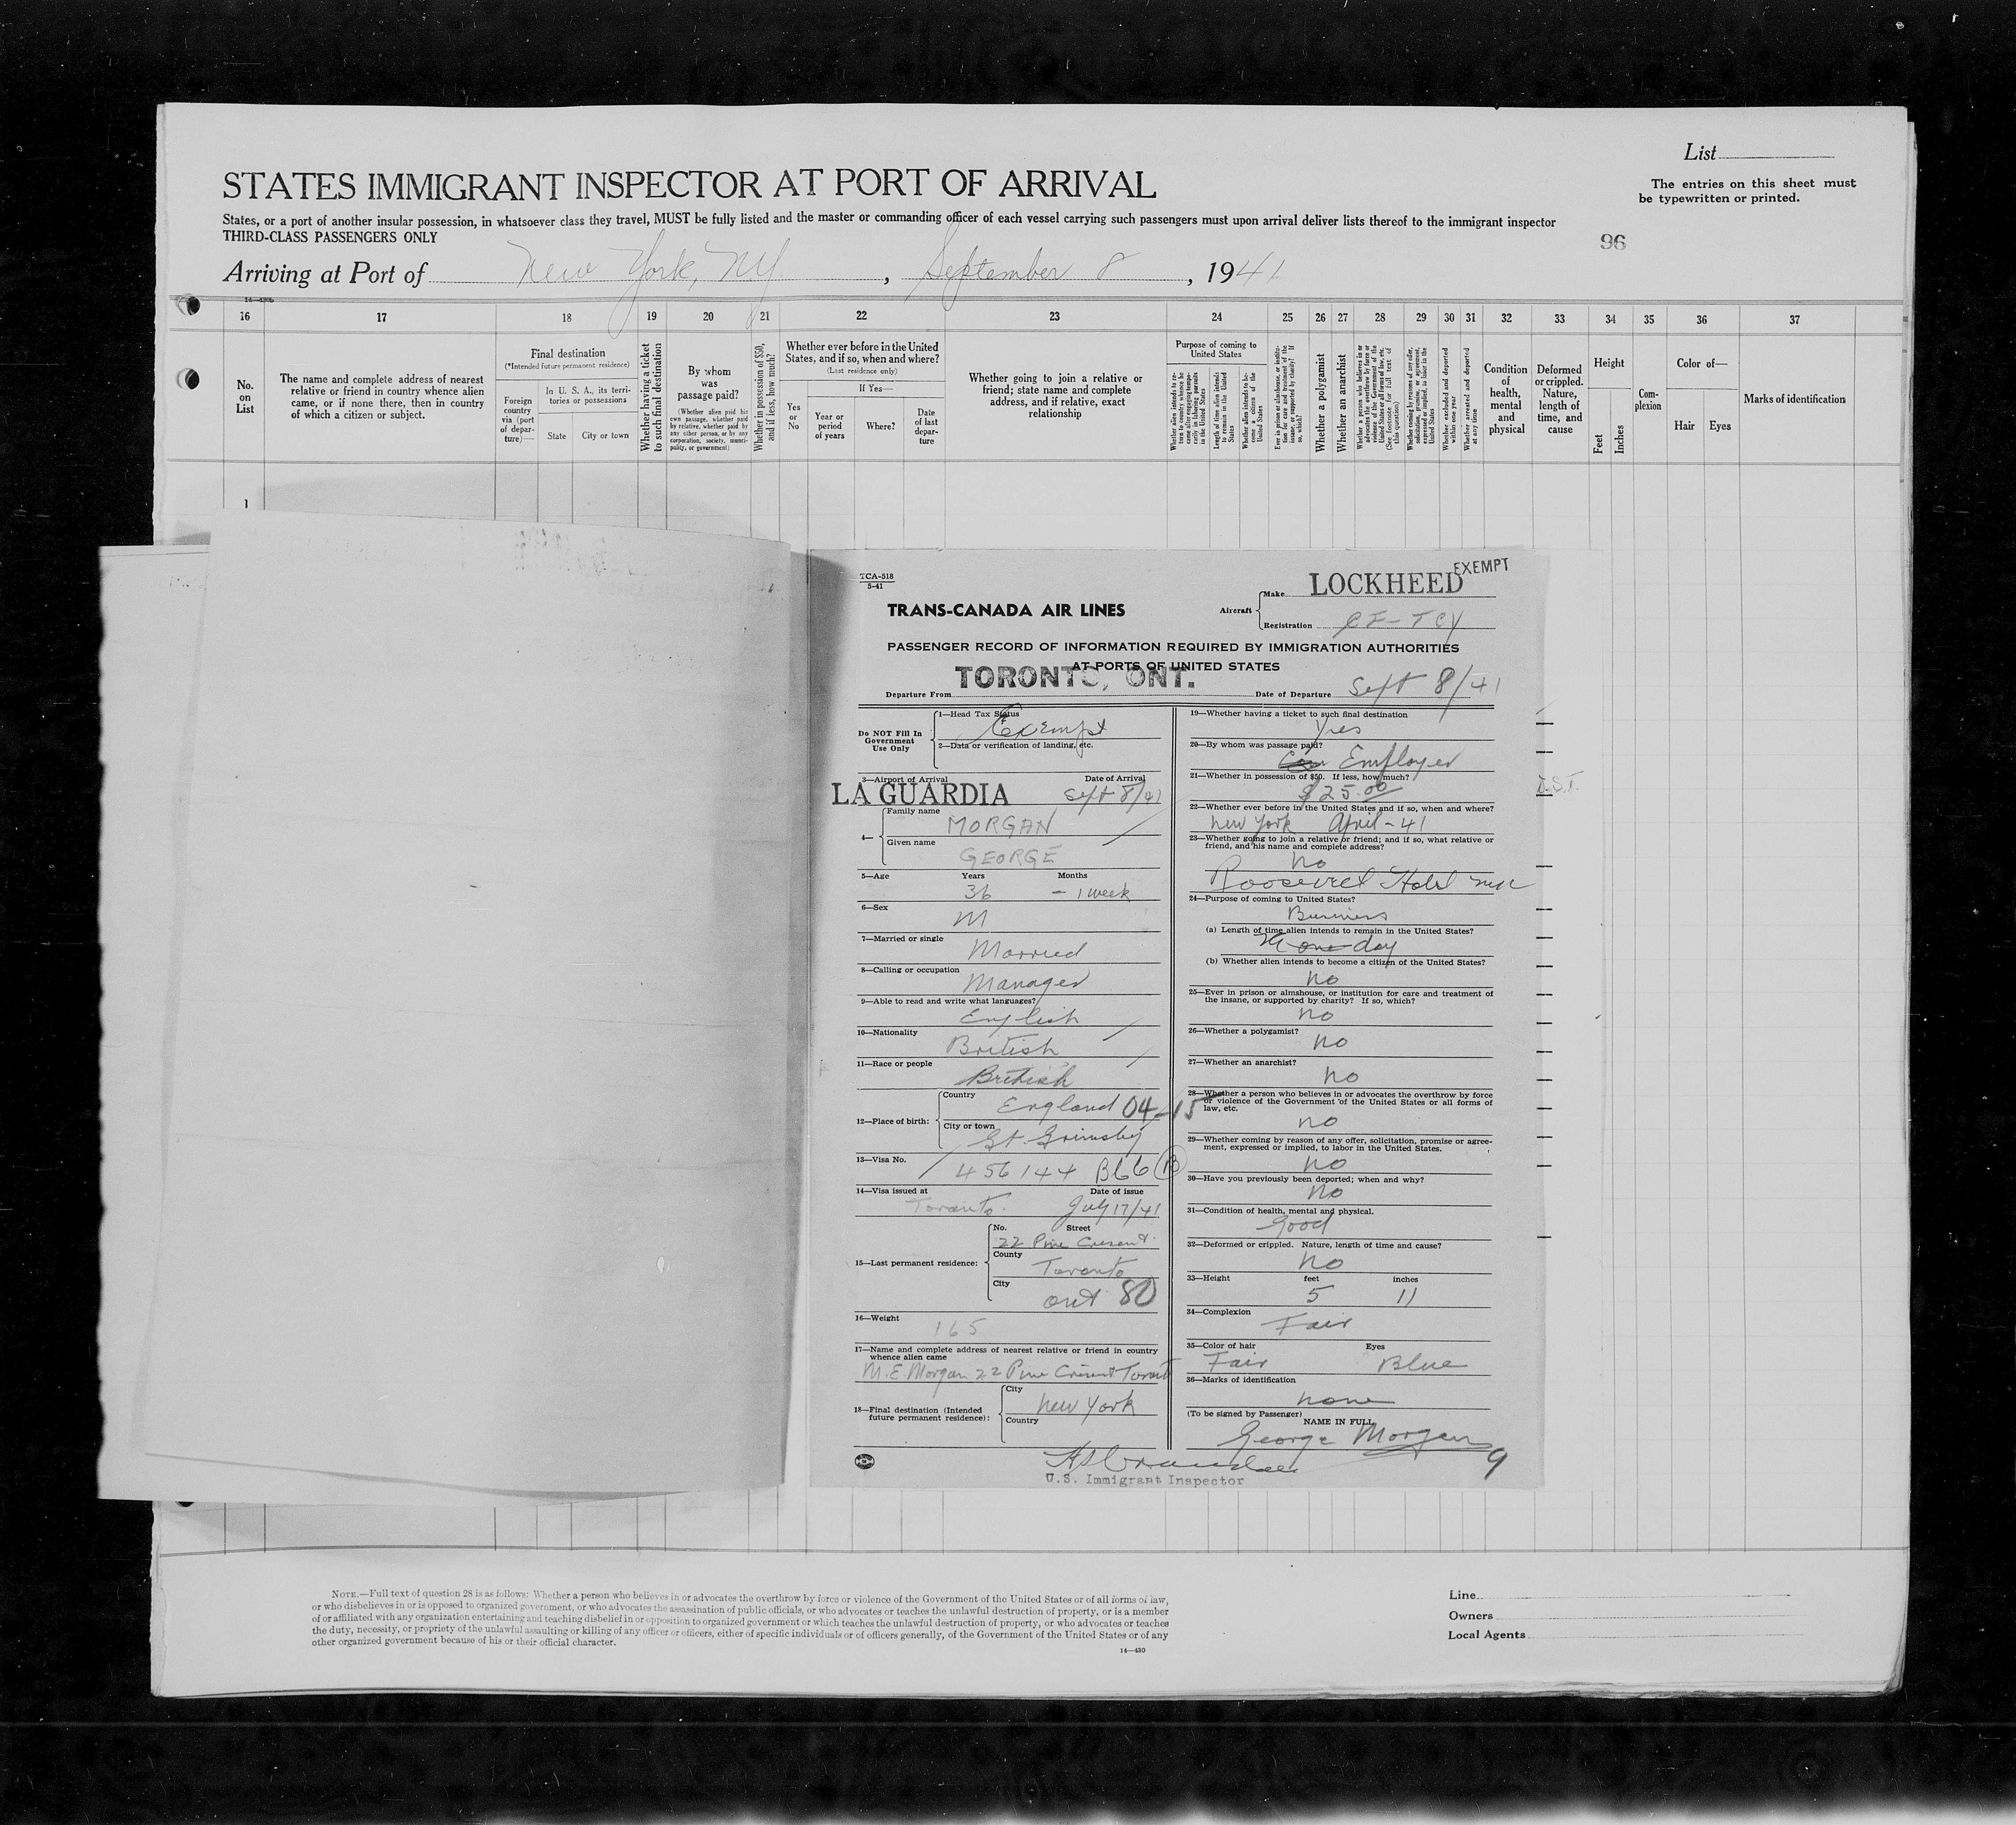 List
The entries on this sheet must
be typewritten or printed.
STATES IMMIGRANT INSPECTOR AT PORT OF ARRIVAL
States, or a port of another insular possession, in whatsoever class they travel, MUST be fully listed and the master or commanding officer of each vessel carrying such passengers must upon arrival deliver lists thereof to the immigrant inspector
THIRD-CLASS PASSENGERS ONLY
96
Arriving at Port of New York, NY, September 8, 1941
16 17 18 19 20 21 22 23 24 25 26 27 28 29 30 31 32 33 34 35 36 37
No. on List
The name and complete address of nearest
relative or friend in country whence alien
came, or if none there, then in country
of which a citizen or subject.
Final destination
(*Intended future permanent residence)
Foreign country via (port of departure)—
In U. S. A., its territories or possessions
State
City or town
Whether having a ticket
to such final destination
By whom was passage paid?
(Whether alien paid his own passage, whether paid by relative, whether paid by any other person, or by any corporation, society, municipality, or government)
Whether in possession of $50,
and if less, how much?
Whether ever before in the United
States, and if so, when and where?
(Last residence only)
Yes or No
If Yes—
Year or period of years
Where?
Date of last departure
Whether going to join a relative or
friend; state name and complete
address, and if relative, exact
relationship
Purpose of coming to
United States
Length of time alien intends to remain in the United States
Whether alien intends to become a citizen of the United States
Whether a polygamist
Whether an anarchist
Whether excluded and deported within one year
Whether arrested and deported at any time
Condition of health, mental and physical
Deformed or crippled. Nature, length of time, and cause
Height
Feet
Inches
Complexion
Color of—
Hair
Eyes
Marks of identification
1
TCA-518
5-41
TRANS-CANADA AIR LINES
Aircraft
Make LOCKHEED
EXEMPT
Registration CF-TCY
PASSENGER RECORD OF INFORMATION REQUIRED BY IMMIGRATION AUTHORITIES
AT PORTS OF UNITED STATES
Departure From TORONTO, ONT.
Date of Departure Sept 8/41
Do NOT Fill In
Government
Use Only
1—Head Tax Status
Exempt
2—Data or verification of landing, etc.
3—Airport of Arrival
Date of Arrival
LA GUARDIA Sept 8/41
4—
Family name
MORGAN
Given name
GEORGE
5—Age Years Months
36 – 1 week
6—Sex
M
7—Married or single
Married
8—Calling or occupation
Manager
9—Able to read and write what languages?
English
10—Nationality
British
11—Race or people
British
12—Place of birth:
Country
England 04-15
City or town
Gt. Grimsby
13—Visa No.
456144 B66 B
14—Visa issued at Date of issue
Toronto. July 17/41
15—Last permanent residence:
No. Street
22 Pine Cresent
County
Toronto
City
Ont 80
16—Weight
165
17—Name and complete address of nearest relative or friend in country
whence alien came
M.E. Morgan 22 Pine Cresent Toront
18—Final destination (Intended
future permanent residence):
City
New York
Country
19—Whether having a ticket to such final destination
Yes
20—By whom was passage paid?
Employer
21—Whether in possession of $50. If less, how much?
$25.00
22—Whether ever before in the United States and if so, when and where?
New York April - 41
23—Whether going to join a relative or friend; and if so, what relative or
friend, and his name and complete address?
No
Roosevelt Hotel NYC
24—Purpose of coming to United States?
Business
(a) Length of time alien intends to remain in the United States?
one day
(b) Whether alien intends to become a citizen of the United States?
No
25—Ever in prison or almshouse, or institution for care and treatment of
the insane, or supported by charity? If so, which?
No
26—Whether a polygamist?
No
27—Whether an anarchist?
No
28—Whether a person who believes in or advocates the overthrow by force
or violence of the Government of the United States or all forms of
law, etc.
No
29—Whether coming by reason of any offer, solicitation, promise or agree-
ment, expressed or implied, to labor in the United States.
No
30—Have you previously been deported; when and why?
No
31—Condition of health, mental and physical.
Good
32—Deformed or crippled. Nature, length of time and cause?
No
33—Height feet inches
5 11
34—Complexion
Fair
35—Color of hair Eyes
Fair Blue
36—Marks of identification
None
(To be signed by Passenger)
NAME IN FULL
George Morgan
9
U.S. Immigrant Inspector
NOTE.—Full text of question 28 is as follows: Whether a person who believes in or advocates the overthrow by force or violence of the Government of the United States or of all forms of law,
or who disbelieves in or is opposed to organized government, or who advocates the assassination of public officials, or who advocates or teaches the unlawful destruction of property, or who is a member
of or affiliated with any organization entertaining and teaching disbelief in or opposition to organized government or which teaches the unlawful destruction of property, or who advocates or teaches
the duty, necessity, or propriety of the unlawful assaulting or killing of any officer or officers, either of specific individuals or of officers generally, of the Government of the United States or of any
other organized government because of his or their official character.
14—430
Line
Owners
Local Agents